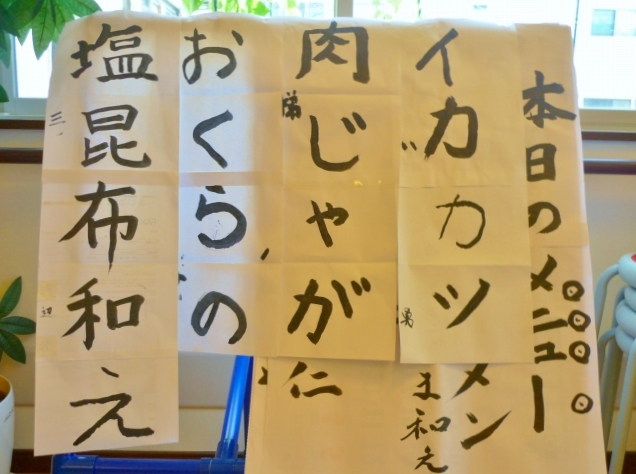 本日のメニュー
イカカツ
メン
ま和え
肉じゃが
仁
おくらの
塩昆布和え